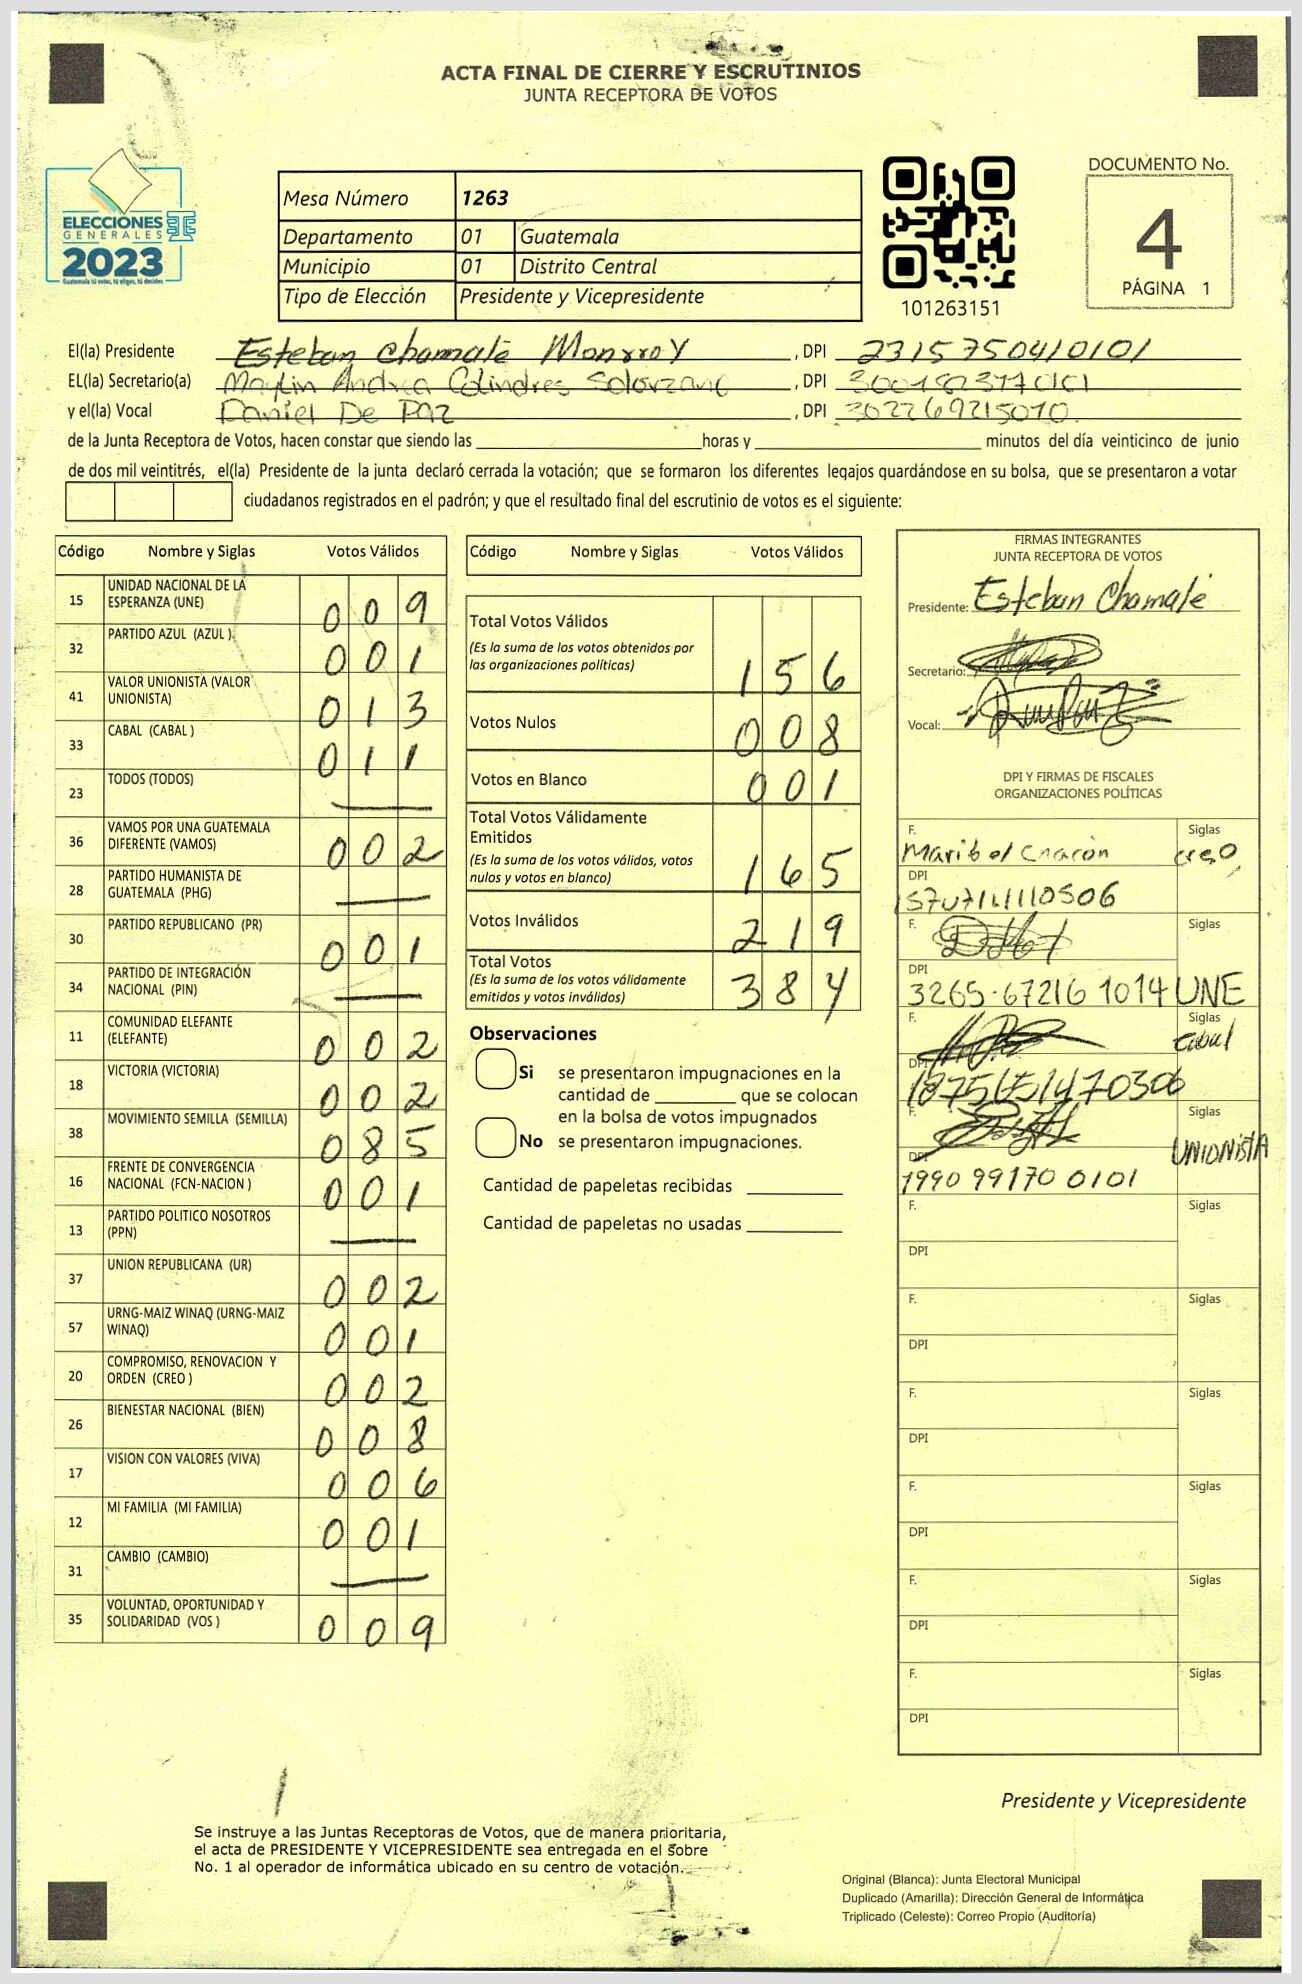 ACTA FINAL DE CIERRE Y ESCRUTINIOS
JUNTA RECEPTORA DE VOTOS
ELECCIONES
GENERALES
2023
Guatemala tú votas, tú eliges, tú decides
Mesa Número 1263
Departamento 01 Guatemala
Municipio 01 Distrito Central
Tipo de Elección Presidente y Vicepresidente
101263151
DOCUMENTO No.
4
PÁGINA 1
El(la) Presidente Esteban Chamalé Monrroy, DPI 2315750410101
EL(la) Secretario(a) Andrea Colindres Solorzano, DPI
y el(la) Vocal Daniel De Paz, DPI 3022692151010
de la Junta Receptora de Votos, hacen constar que siendo las horas y minutos del día veinticinco de junio
de dos mil veintitrés, el(la) Presidente de la junta declaró cerrada la votación; que se formaron los diferentes legajos guardándose en su bolsa, que se presentaron a votar
ciudadanos registrados en el padrón; y que el resultado final del escrutinio de votos es el siguiente:
Código Nombre y Siglas Votos Válidos
15 UNIDAD NACIONAL DE LA
ESPERANZA (UNE) 009
32 PARTIDO AZUL (AZUL ) 001
41 VALOR UNIONISTA (VALOR
UNIONISTA) 013
33 CABAL (CABAL ) 011
23 TODOS (TODOS) —
36 VAMOS POR UNA GUATEMALA
DIFERENTE (VAMOS) 002
28 PARTIDO HUMANISTA DE
GUATEMALA (PHG) —
30 PARTIDO REPUBLICANO (PR) 001
34 PARTIDO DE INTEGRACIÓN
NACIONAL (PIN) —
11 COMUNIDAD ELEFANTE
(ELEFANTE) 002
18 VICTORIA (VICTORIA) 002
38 MOVIMIENTO SEMILLA (SEMILLA) 085
16 FRENTE DE CONVERGENCIA
NACIONAL (FCN-NACION ) 001
13 PARTIDO POLITICO NOSOTROS
(PPN) —
37 UNION REPUBLICANA (UR) 002
57 URNG-MAIZ WINAQ (URNG-MAIZ
WINAQ) 001
20 COMPROMISO, RENOVACION Y
ORDEN (CREO ) 002
26 BIENESTAR NACIONAL (BIEN) 008
17 VISION CON VALORES (VIVA) 006
12 MI FAMILIA (MI FAMILIA) 001
31 CAMBIO (CAMBIO) —
35 VOLUNTAD, OPORTUNIDAD Y
SOLIDARIDAD (VOS ) 009
Código Nombre y Siglas Votos Válidos
Total Votos Válidos
(Es la suma de los votos obtenidos por
las organizaciones políticas) 156
Votos Nulos 008
Votos en Blanco 001
Total Votos Válidamente
Emitidos
(Es la suma de los votos válidos, votos
nulos y votos en blanco) 165
Votos Inválidos 219
Total Votos
(Es la suma de los votos válidamente
emitidos y votos inválidos) 384
Observaciones
Si se presentaron impugnaciones en la
cantidad de que se colocan
en la bolsa de votos impugnados
No se presentaron impugnaciones.
Cantidad de papeletas recibidas
Cantidad de papeletas no usadas
FIRMAS INTEGRANTES
JUNTA RECEPTORA DE VOTOS
Presidente: Esteban Chamalé
Secretario:
Vocal:
DPI Y FIRMAS DE FISCALES
ORGANIZACIONES POLÍTICAS
F. Siglas
Maribel Chacón creo
DPI
F. Siglas
DPI
3265 67216 1014 UNE
F. Siglas
Cabal
DPI
F. Siglas
UNIONISTA
DPI
1990 99170 0101
F. Siglas
DPI
F. Siglas
DPI
F. Siglas
DPI
F. Siglas
DPI
F. Siglas
DPI
F. Siglas
DPI
Presidente y Vicepresidente
Se instruye a las Juntas Receptoras de Votos, que de manera prioritaria,
el acta de PRESIDENTE Y VICEPRESIDENTE sea entregada en el sobre
No. 1 al operador de informática ubicado en su centro de votación.
Original (Blanca): Junta Electoral Municipal
Duplicado (Amarilla): Dirección General de Informática
Triplicado (Celeste): Correo Propio (Auditoría)